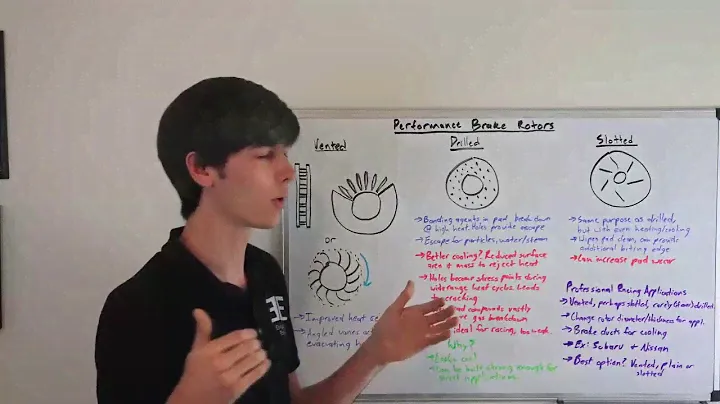 Performance Brake Rotors
Vented
or
→ Improved heat
→ Angled vanes
evacuating
Drilled
→ Bonding agents in pad break down
@ high heat. Holes provide escape
→ Escape for particles, water/steam
→ Better cooling? Reduced surface
area & mass to reject heat
→ Holes become stress points during
wide range heat cycles. Leads
to cracking
compounds vastly
gas breakdown
ideal for racing, too weak.
Why?
→ Looks cool
→ Can be built strong enough for
street applications
Slotted
→ Same purpose as drilled,
but with even heating/cooling
→ Wipes pad clean, can provide
additional biting edge
→ Can increase pad wear
Professional Racing Applications
→ Vented, perhaps slotted, rarely drilled
→ Change rotor diameter/thickness for appl.
→ Brake ducts for cooling
→ Ex: Subaru & Nissan
→ Best option? Vented, plain or
slotted